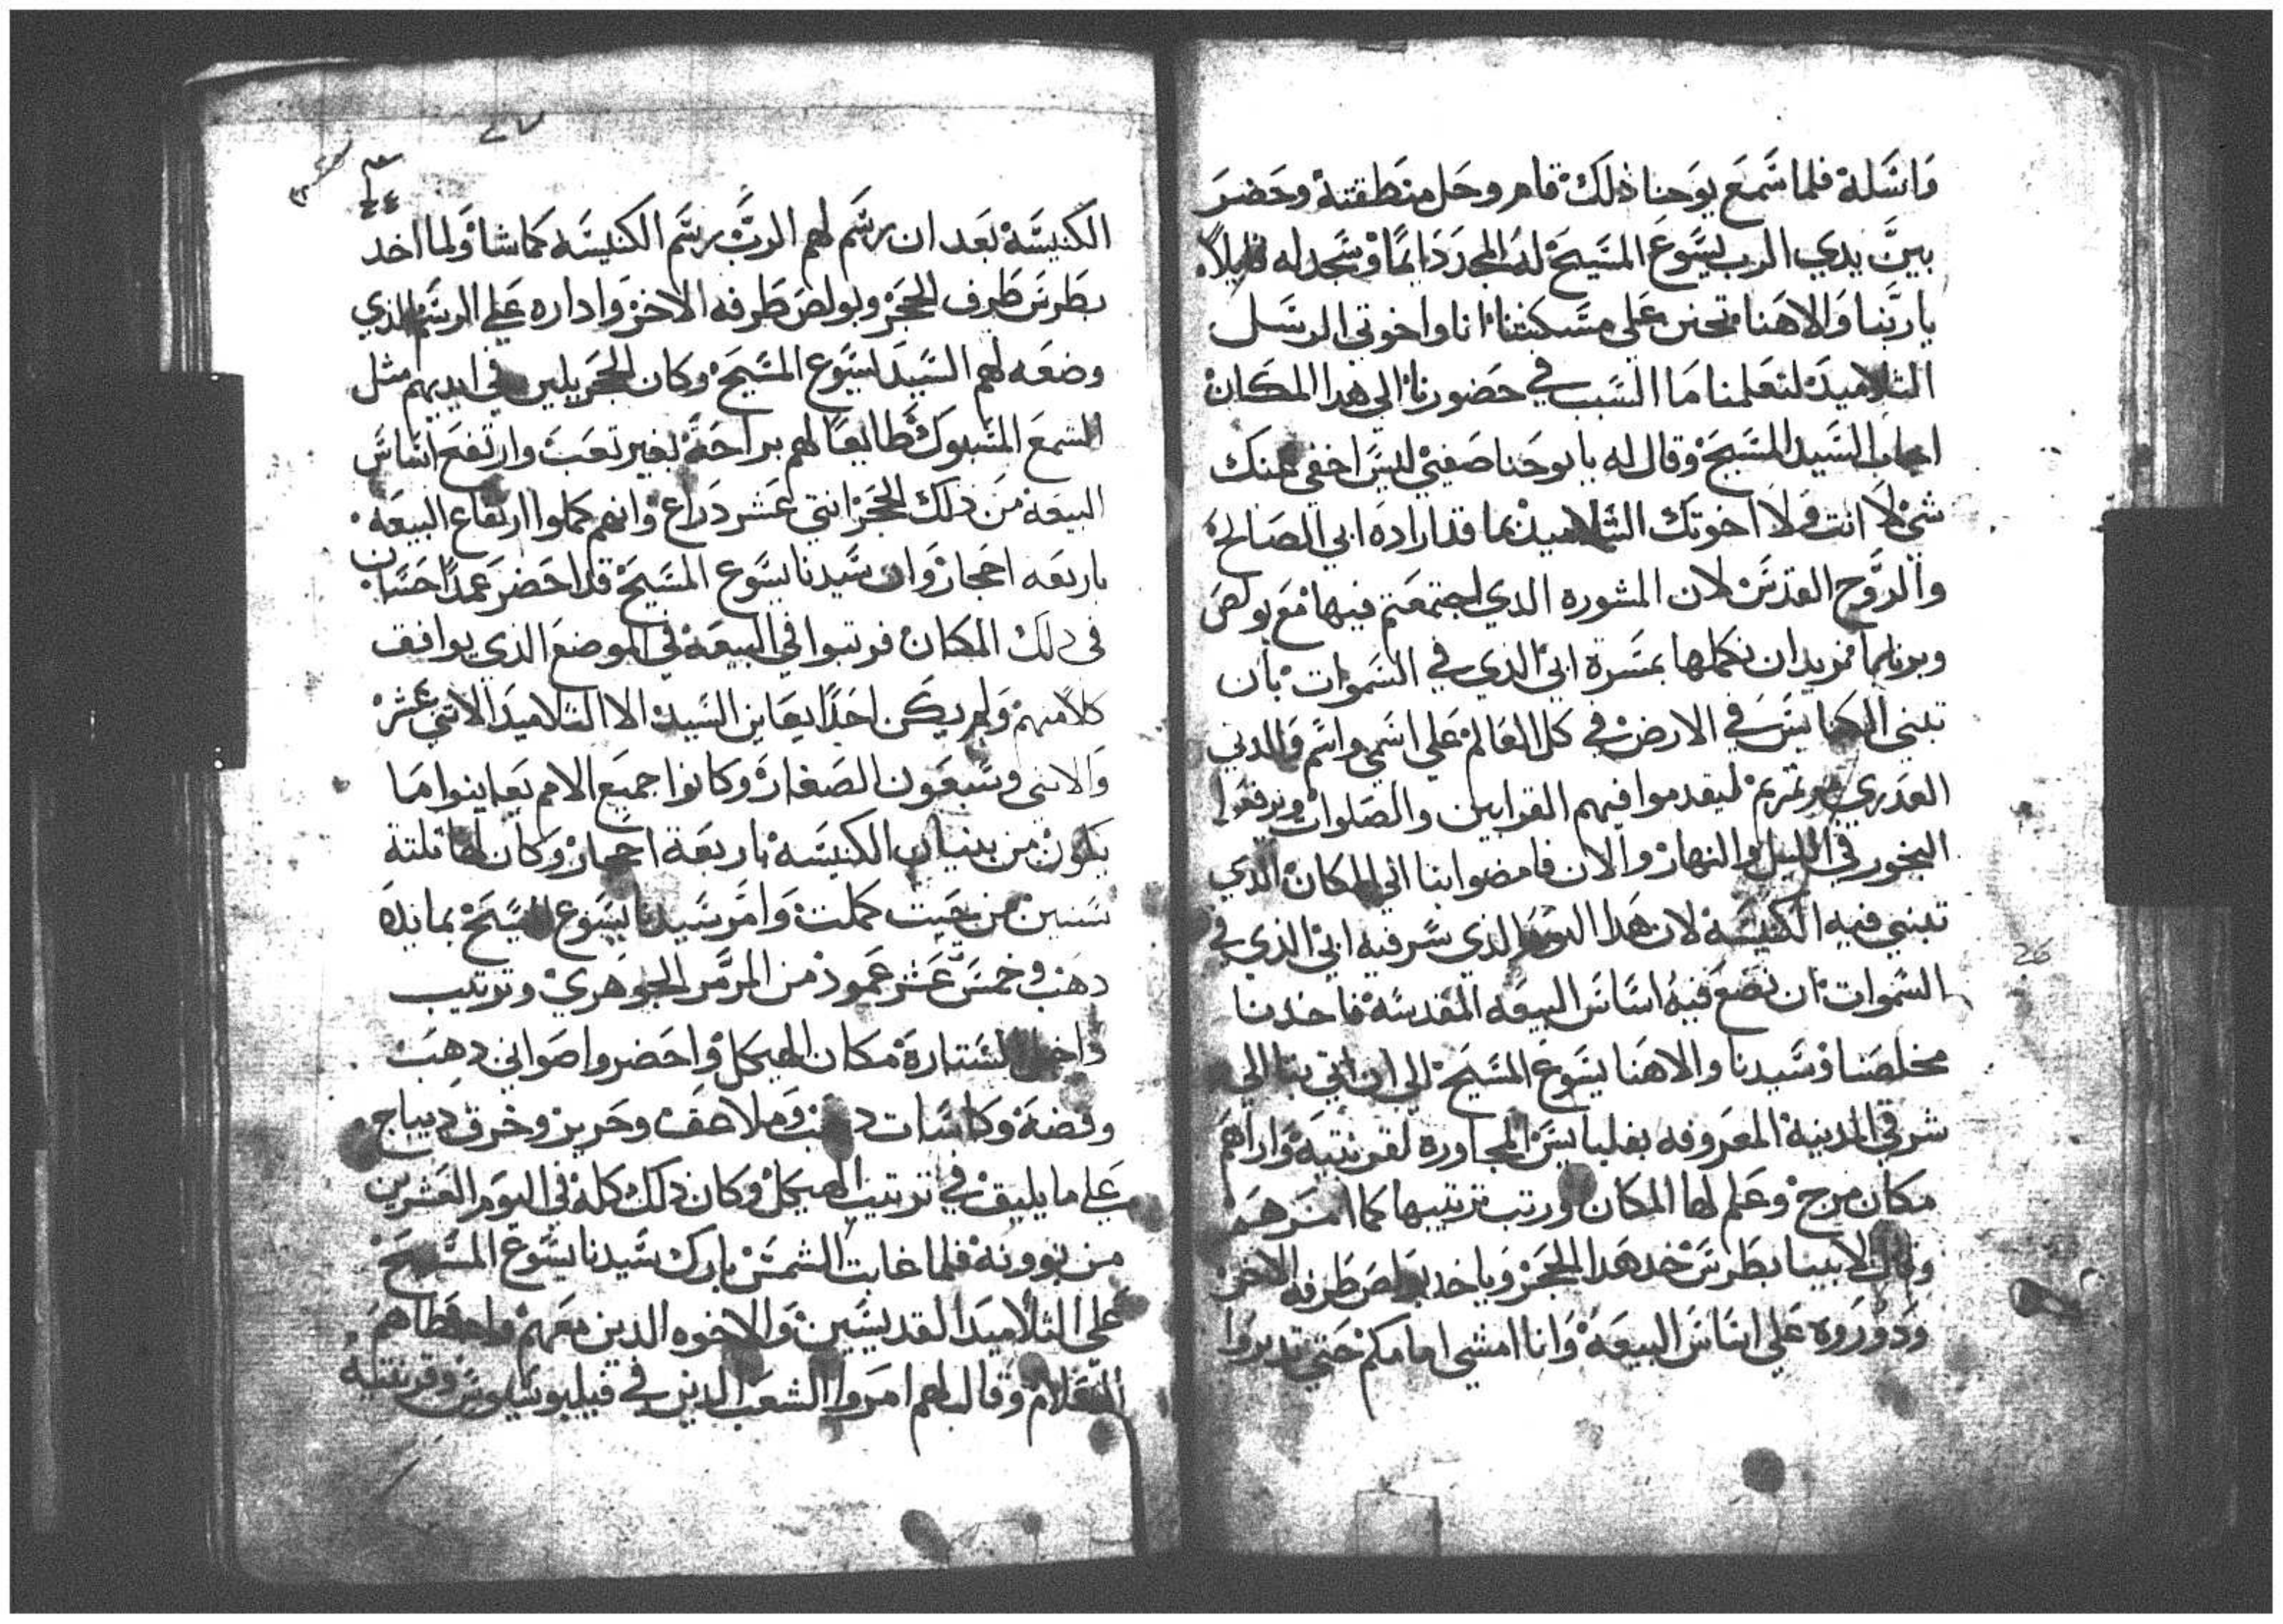 واسله فلما سمع يوحنا ذلك قام وحل منطقته وحضر
بين يدي الرب يسوع المسيح له المجد دايمًا وسجد له قايلًا
يا ربنا والاهنا تحنن علي مسكنتنا انا واخوتي الرسل
التلاميد لتعلمنا ما السبب في حضورنا الي هدا المكان
اجاب السيد المسيح وقال له يا يوحنا صفيي ليس اخفي عنك
شي لا انت ولا اخوتك التلاميد بما قد اراده ابي الصالح
والروح القدس لان المشوره الدي اجتمعتم فيها مع بولص
وبرنابا نريد ان نكملها بمسرة ابي الدي في السموات بان
تبني الكنايس في الارض في كل العالم علي اسمي واسم والدتي
العدري مرتمريم ليقدموا فيهم القرابين والصلوات ويرفعوا
البخور في الليل والنهار والان فامضوا بنا الي المكان الدي
تبني فيه الكنيسه لان هدا اليوم الذي سر فيه ابي الذي في
السموات ان نضع فيه اساس البيعه المقدسه فاخدنا
مخلصنا وسيدنا والاهنا يسوع المسيح الي ان اتي بنا الي
شرقي المدينة المعروفه بفلبايس المجاوره لقرنتيه واراهم
مكان مرج وعلم لها المكان ورتب ترتيبها كما امرهم
وقال لابينا بطرس خد هدا الحجر وياخد بولص طرفه الاخر
ودوروه علي اساس البيعه وانا امشي امامكم حتي تديروا
الكنيسه بعد ان رسم لهم الرب رسم الكنيسه كما شا ولما اخد
بطرس طرف الحجر وبولص طرفه الاخر واداره علي الرسم الذي
وضعه لهم السيد يسوع المسيح وكان الحجر يلين في ايديهم مثل
الشمع المسبوك طايعًا لهم براحة بغير تعب وارتفع اساس
البيعه من ذلك الحجر اتني عشر دراع وانهم كملوا ارتفاع البيعه
باربعه احجار وان سيدنا يسوع المسيح قد احضر عمدًا حسان
في دلك المكان فرتبوا في البيعه في الموضع الذي يوافق
كلا منهم ولم يكن احدًا يعاين السيد الا التلاميد الاتني عشر
والاتني وسبعون الصغار وكانوا جميع الامم يعاينوا ما
يكون من بنيان الكنيسه باربعة احجار وكان لها تلتة
سنين من حيت كملت وامر سيدنا يسوع المسيح بمايدة
دهب وخمس عشر عمود من المرمر الجوهري وترتيب
داخل الستارة مكان الهيكل واحضروا صواني دهب
وفضة وكاسات دهب وملاحف وحرير وخرق ديباج
علي ما يليق في ترتيب الهيكل وكان ذلك كله في اليوم العشرين
من بوونه فلما غابت الشمس بارك سيدنا يسوع المسيح
علي التلاميد القديسين والاخوه الدين معهم واعطاهم
السلام وقال لهم امروا الشعب الدين في فيلبوسايوس وقرنتيه
26